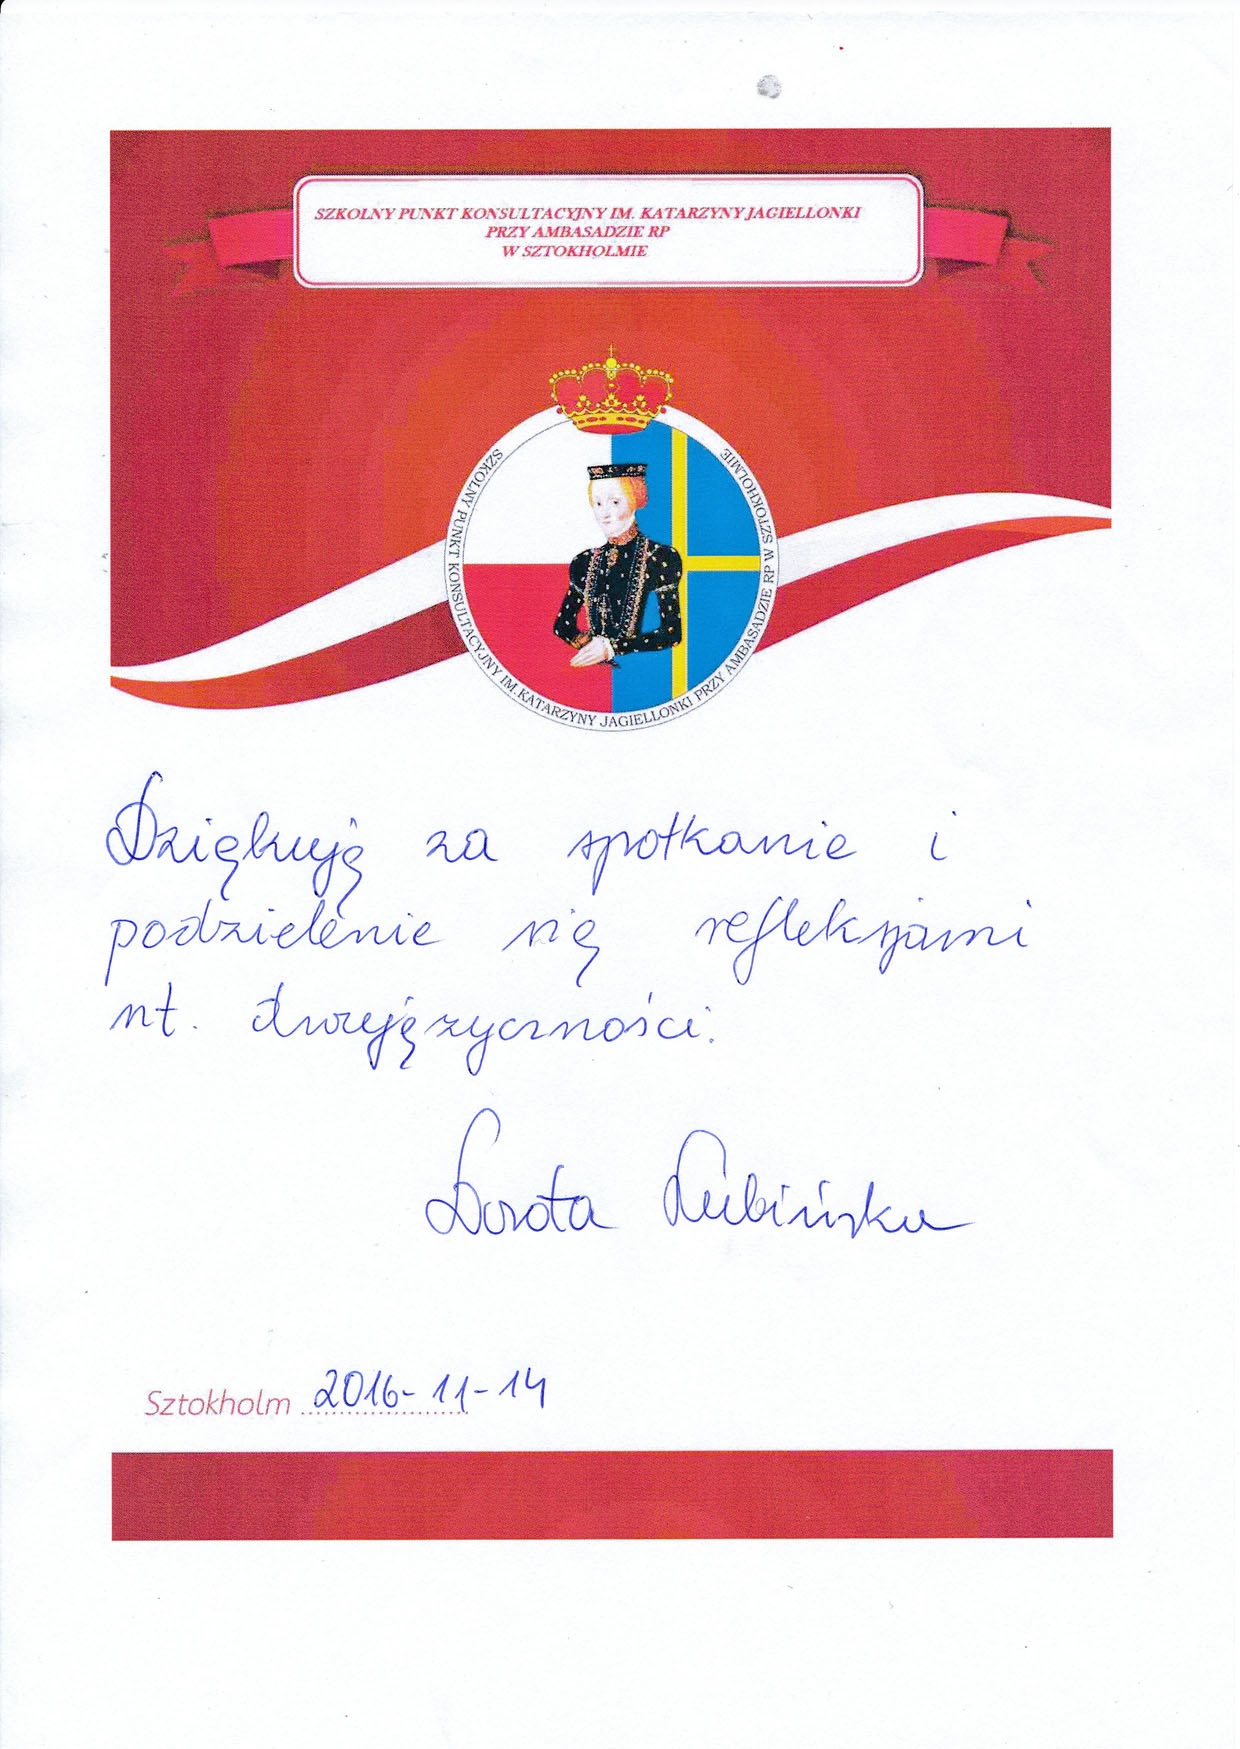 SZKOLNY PUNKT KONSULTACYJNY IM. KATARZYNY JAGIELLONKI
PRZY AMBASADZIE RP
W SZTOKHOLMIE
SZKOLNY PUNKT KONSULTACYJNY IM. KATARZYNY JAGIELLONKI PRZY AMBASADZIE RP W SZTOKHOLMIE
Dziękuję za spotkanie i
podzielenie się refleksjami
nt. dwujęzyczności.
Dorota Lubińska
Sztokholm 2016-11-14